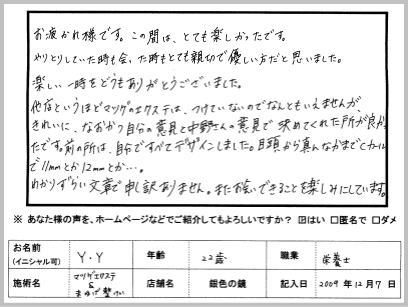 お疲れ様です。この間は、とても楽しかったです。
やりとりしていた時も会った時もとても親切で優しい方だと思いました。
楽しい一時をどうもありがとうございました。
他店というほどマツゲのエクステは、つけていないのでなんともいえませんが、
きれいに、なおかつ自分の意見と中野さんの意見で決めてくれた所が良かっ
たです。前の所は、自分ですべてデザインしました。目頭から真んなかまでCカール
で11mmとか12mmとか…。
わかりずらい文章で申し訳ありません。またお会いできることを楽しみにしています。
※ あなた様の声を、ホームページなどでご紹介してもよろしいですか? ☑はい □匿名で □ダメ
お名前 (イニシャル可) Y・Y 年齢 22歳 職業 栄養士
施術名 マツゲエクステ & まゆげ整けい 店舗名 銀色の鏡 記入日 2009年12月7日